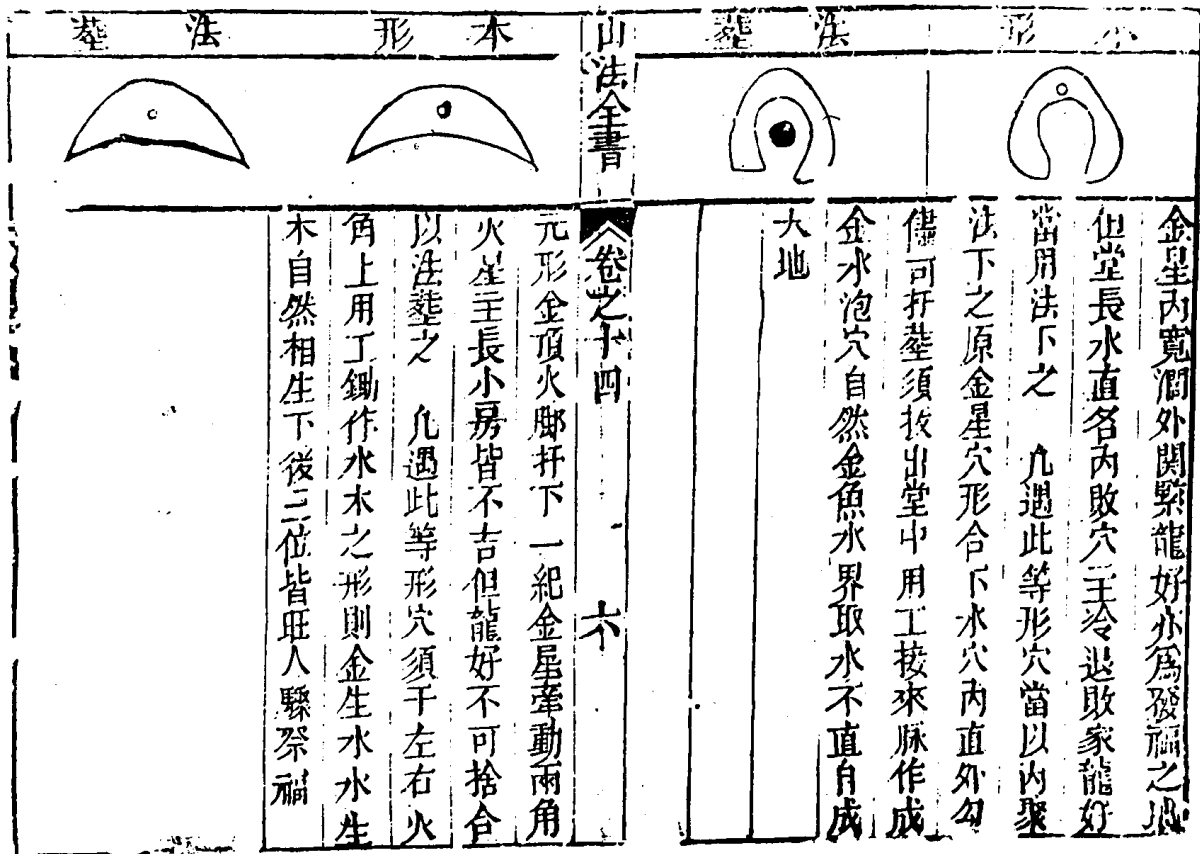 本形
法塟
金星內寬濶外関緊龍好亦爲發福之地
但堂長水直名內敗穴主冷退敗家龍好
當用法下之　凢遇此等形穴當以內聚
法下之原金星穴形合下水穴內直外勾
儘可扦塟須抜出堂中用工接來脉作成
金水泡穴自然金魚水界取水不直自成
大地
山法全書
卷之十四
六
本形
法塟
元形金頂火脚扦下一紀金星牽動兩角
火星主長小房皆不吉但龍好不可捨合
以法塟之　凢遇此等形穴須于左右火
角上用工鋤作水木之形則金生水水生
木自然相生下後三位皆旺人驟發福